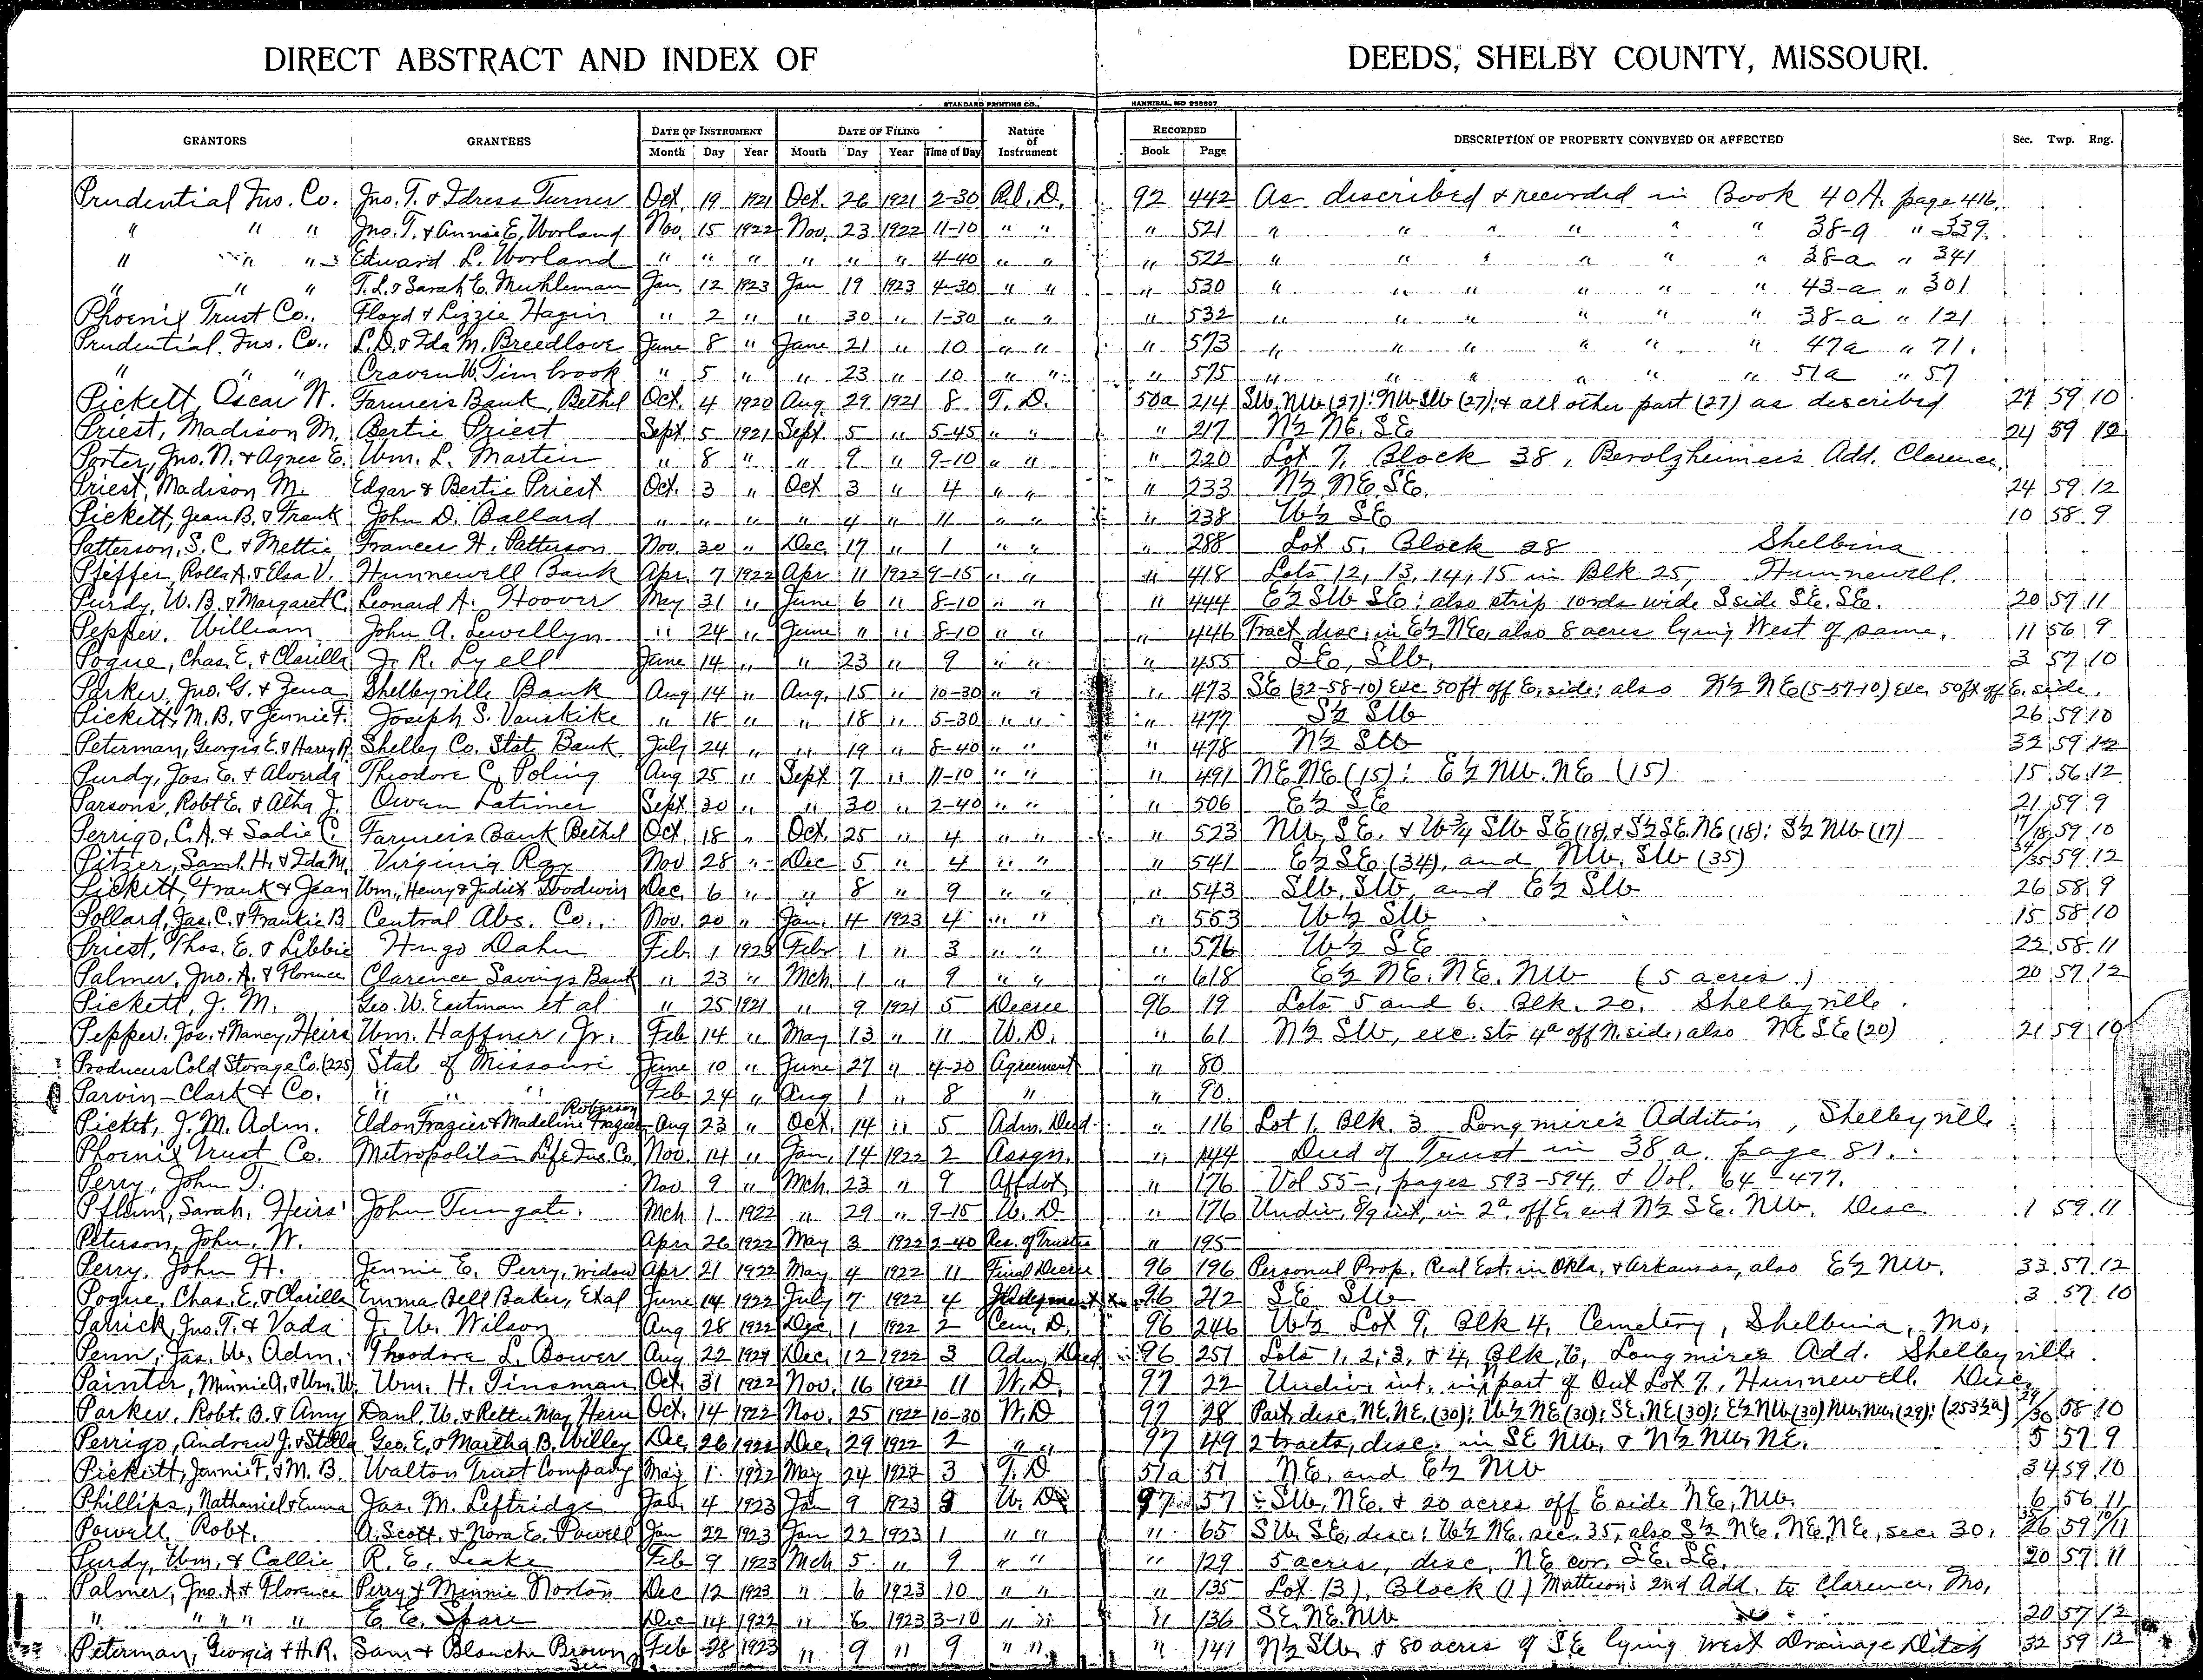 DIRECT ABSTRACT AND INDEX OF DEEDS, SHELBY COUNTY, MISSOURI.
STANDARD PRINTING CO., HANNIBAL, MO 256697
GRANTORS GRANTEES DATE OF INSTRUMENT DATE OF FILING Nature of Instrument RECORDED DESCRIPTION OF PROPERTY CONVEYED OR AFFECTED Sec. Twp. Rng.
Month Day Year Month Day Year Time of Day Book Page
Prudential Ins. Co. Jno. T. & Idress Turner Oct. 19 1921 Oct. 26 1921 2-30 Rel. D. 92 442 As described & recorded in Book 40A. page 416.
" " " Jno. T. & Annie E. Worland Nov. 15 1922 Nov. 23 1922 11-10 " " " 521 " " " " " " 38-a " 339.
" " " Edward L. Worland " " " " " " 4-40 " " " 522 " " " " " " 38-a " 341
" " " T. L. & Sarah E. Muhleman Jan. 12 1923 Jan 19 1923 4-30 " " " 530 " " " " " " 43-a " 301
Phoenix Trust Co. Floyd & Lizzie Hagin " 2 " " 30 " 1-30 " " " 532 " " " " " " 38-a " 121
Prudential Ins. Co. L. D. & Ida M. Breedlove June 8 " June 21 " 10 " " " 573 " " " " " " 47a " 71.
" " " Craven W. Timbrook " 5 " " 23 " 10 " " " 575 " " " " " " 51a " 57
Pickett, Oscar W. Farmers Bank, Bethel Oct. 4 1920 Aug. 29 1921 8 T. D. 50a 214 SW. NW (27): NW SW (27): & all other part (27) as described 27 59 10
Priest, Madison M. Bertie Priest Sept. 5 1921 Sept. 5 " 5-45 " " " 217 N½ NE. SE 24 59 12
Porter, Jno. N. & Agnes E. Wm. L. Martin " 8 " " 9 " 9-10 " " " 220 Lot 7, Block 38, Berolzheimer's Add. Clarence.
Priest, Madison M. Edgar & Bertie Priest Oct. 3 " Oct 3 " 4 " " " 233 N½ NE. SE. 24 59 12
Pickett, Jean B. & Frank John D. Ballard " " " " 4 " 11 " " " 238 W½ SE 10 58 9
Patterson, S. C. & Mettie Frances H. Patterson Nov. 30 " Dec. 17 " 1 " " " 288 Lot 5. Block 28 Shelbina
Pfeffer, Rolla A. & Elsa V. Hunnewell Bank Apr. 7 1922 Apr 11 1922 9-15 " " " 418 Lots 12, 13, 14, 15 in Blk 25, Hunnewell.
Purdy, W. B. & Margaret C. Leonard A. Hoover May 31 " June 6 " 8-10 " " " 444 E½ SW SE; also strip 10rds wide S side SE. SE. 20 57 11
Pepper, William John A. Lewellyn " 24 " June " " 8-10 " " " 446 Tract desc. in E½ NE, also 8 acres lying West of same. 11 56 9
Pogue, Chas. E. & Clarilla J. R. Lyell June 14 " " 23 " 9 " " " 455 SE, SW. 3 57 10
Parker, Jno. G. & Jena Shelbyville Bank Aug 14 " Aug. 15 " 10-30 " " " 473 SE (32-58-10) exc 50ft off E. side; also N½ NE (5-57-10) exc. 50ft off E. side.
Pickett, M. B. & Jennie F. Joseph S. Vanskike " 18 " " 18 " 5-30 " " " 477 S½ SW 26 59 10
Peterman, Georgia E. & Harry R. Shelby Co. State Bank July 24 " " 19 " 8-40 " " " 478 N½ SW 32 59 12
Purdy, Jos. E. & Alverda Theodore C. Poling Aug 25 " Sept 7 " 11-10 " " " 491 NE NE (15): E½ NW. NE (15) 15 56 12
Parsons, Robt E. & Altha J. Owen Latimer Sept. 30 " " 30 " 2-40 " " " 506 E½ SE 21 59 9
Perrigo, C. A. & Sadie C. Farmers Bank Bethel Oct. 18 " Oct. 25 " 4 " " " 523 NW, SE. & W¾ SW SE (18), & S½ SE. NE (18): S½ NW (17) 17/18 59 10
Pitzer, Saml. H. & Ida M. Virginia Ray Nov 28 " Dec 5 " 4 " " " 541 E½ SE (34), and NW. SW (35) 34/35 59 12
Pickett, Frank & Jean Wm., Henry & Judith Goodwin Dec. 6 " " 8 " 9 " " " 543 SW. SW, and E½ SW 26 58 9
Pollard, Jas. C. & Frankie B. Central Abs. Co. Nov. 20 " Jan. 4 1923 4 " " " 553 W½ SW 15 58 10
Priest, Thos. E. & Libbie Hugo Dahn Feb 1 1923 Feb 1 " 3 " " " 576 W½ SE 22 58 11
Palmer, Jno. A. & Florence Clarence Savings Bank " 23 " Mch. 1 " 9 " " " 618 E½ NE. NE. NW (5 acres.) 20 57 12
Pickett, J. M. Geo. W. Eastman et al " 25 1921 " 9 1921 5 Decree 96 19 Lots 5 and 6. Blk. 20. Shelbyville.
Pepper, Jos. & Nancy, Heirs Wm. Haffner, Jr. Feb 14 " May 13 " 11 W. D. " 61 N½ SW, exc. str 4a off N. side, also NE SE (20) 21 59 10
Producers Cold Storage Co. (225) State of Missouri June 10 " June 27 " 4-20 Agreement " 80
Parvin-Clark & Co. " " " Feb 24 " Aug 1 " 8 " " 90
Picket, J. M. Adm. Eldon Frazier & Madeline Roberson Frazier Aug 23 " Oct. 14 " 5 Adm. Deed " 116 Lot 1, Blk. 3 Longmire's Addition, Shelbyville
Phoenix Trust Co. Metropolitan Life Ins. Co. Nov. 14 " Jan. 14 1922 2 Assgn. " 144 Deed of Trust in 38a. page 81.
Perry, John T. Nov 9 " Mch. 23 " 9 Affdvt " 176 Vol 55-, pages 593-594, & Vol. 64-477.
Pflum, Sarah, Heirs John Tungate. Mch 1 1922 " 29 " 9-15 W. D " 176 Undiv. 8/9 int. in 2a. off E. end N½ SE. NW. Desc. 1 59 11
Peterson, John. W. Apr 26 1922 May 3 1922 2-40 Res. of Trustee " 195
Perry, John H. Jennie E. Perry, widow Apr 21 1922 May 4 1922 11 Final Decree 96 196 Personal Prop. Real Est. in Okla. & Arkansas, also E½ NW. 33 57 12
Pogue, Chas. E. & Clarilla Emma Bell Baker, Etal June 14 1922 July 7 1922 4 Judgment 96 212 SE SW 3 57 10
Patrick, Jno. T. & Vada J. W. Wilson Aug 28 1922 Dec. 1 1922 2 Cem. D. 96 246 W½ Lot 9, Blk 4, Cemetery, Shelbina, Mo,
Penn, Jas. W. Adm. Theodore L. Bower Aug 22 1921 Dec. 12 1922 3 Adm. Deed 96 251 Lots 1, 2, 3, & 4, Blk. 6, Longmires Add. Shelbyville
Painter, Minnie A. & Wm. W. Wm. H. Tinsman Oct. 31 1922 Nov. 16 1922 11 W. D. 97 22 Undiv. int. in part of Out Lot 7, Hunnewell. Desc.
Parker, Robt. B. & Amy Danl. W. & Retta May Hern Oct. 14 1922 Nov. 25 1922 10-30 W. D 97 28 Part desc. NE. NE. (30): W½ NE (30): SE. NE (30): E½ NW (30) NW. NW. (29): (253½a) 29/30 58 10
Perrigo, Andrew J. & Stella Geo. E. & Martha B. Willey Dec. 26 1922 Dec. 29 1922 2 " " 97 49 2 tracts, desc. in SE NW. & N½ NW. NE. 5 57 9
Pickett, Jennie F. & M. B. Walton Trust Company May 1 1922 May 24 1922 3 T. D 51a 51 NE, and E½ NW 34 59 10
Phillips, Nathaniel & Emma Jas. M. Leftridge Jan. 4 1923 Jan 9 1923 9 W. D. 97 57 SW. NE. & 20 acres off E side NE. NW. 6 56 11
Powell, Robt. A. Scott. & Nora E. Powell Jan 22 1923 Jan 22 1923 1 " " " 65 SW. SE, desc: W½ NE. sec. 35, also S½ NE. NE, NE, sec. 30. 59
Purdy, Wm. & Callie R. E. Leake Feb 9 1923 Mch 5 " 9 " " " 129 5 acres, desc, NE cor. SE. SE. 20 57 11
Palmer, Jno. A. & Florence Perry & Minnie Norton Dec 12 1923 " 6 1923 10 " " " 135 Lot 13), Block (1) Mattison's 2nd Add. to Clarence, Mo,
" " " " " E. E. Spare Dec 14 1922 " 6 1923 3-10 " " " 136 SE. NE. NW 20 57 12
Peterman, Georgia & H. R. Sam & Blanche Brown Feb 28 1923 " 9 " 9 " " " 141 N½ SW. & 80 acres of SE lying west Drainage Ditch 32 59 12